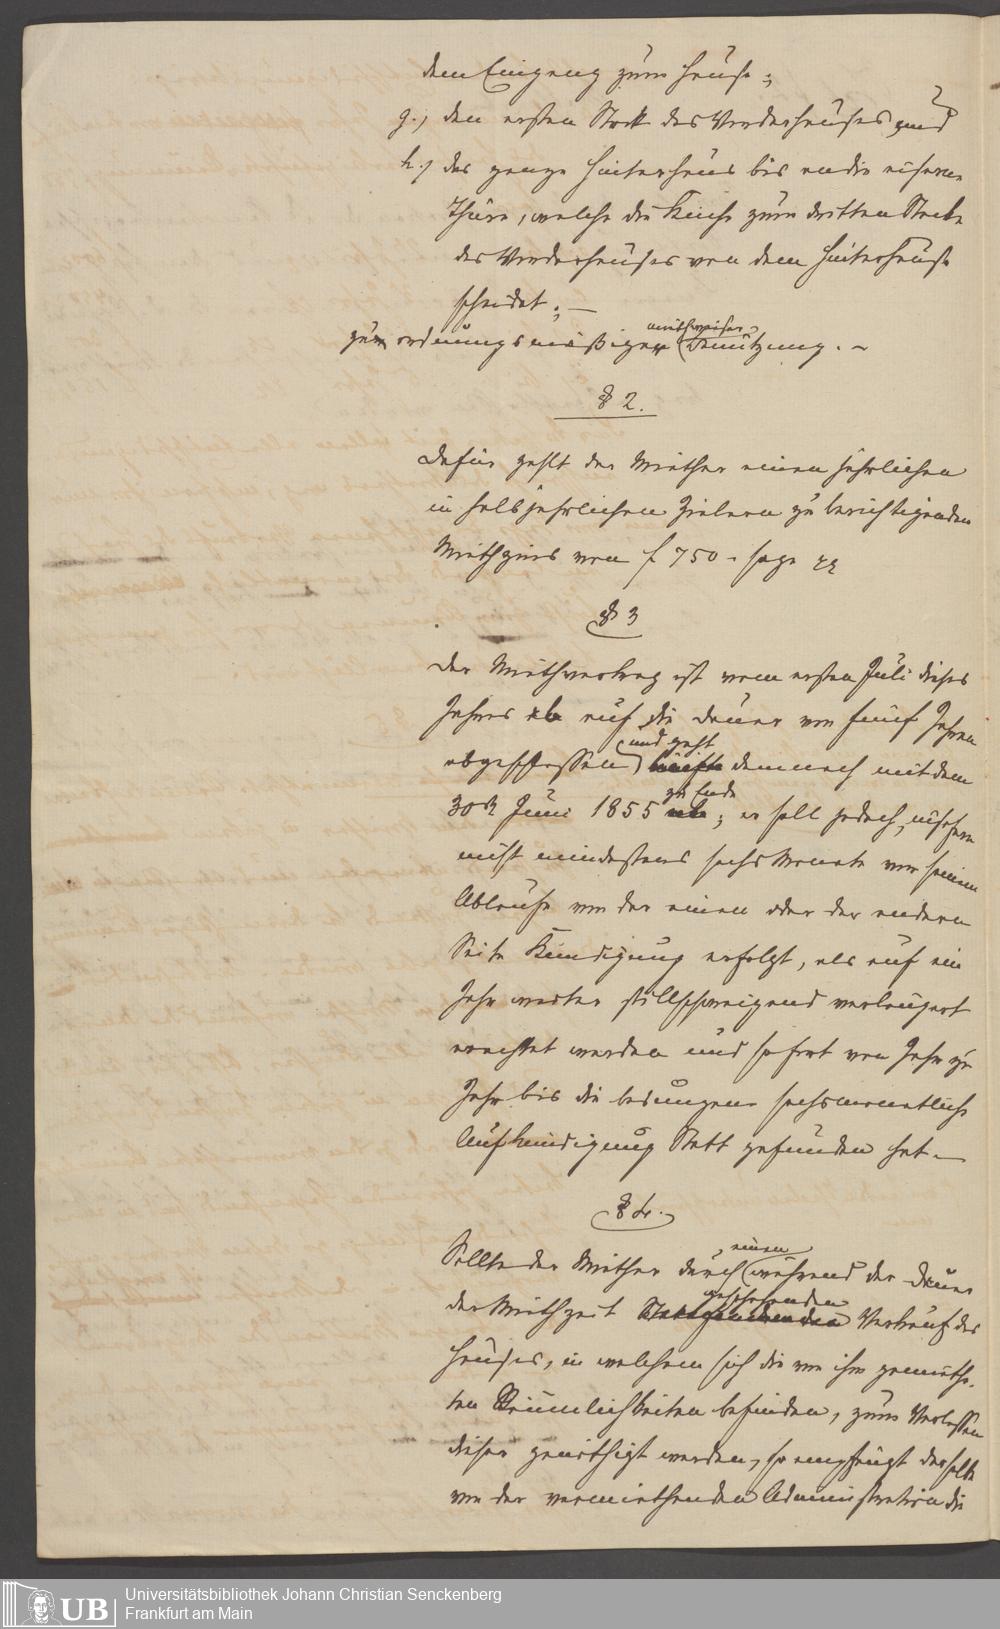 dem Eingang zum Hause;
g.) den ersten Stock des Vorderhauses, und
h.) das ganze Hinterhaus bis an die eiserne
Thüre, welche die Küche zum dritten Stocke
des Vorderhauses von dem Hinterhause
scheidet; —
zur ordnungsmäßigen miethweisen Benützung. –
§ 2.
Dafür zahlt der Miether einen jährlichen
in halbjährlichen Zielen zu berichtigenden
Miethzins von f 750 – sage
§ 3
Der Miethvertrag ist vom ersten Juli dieses
Jahres ab auf die Dauer von fünf Jahren
abgeschlossen, und geht demnach mit dem
30n Juni 1855 zu Ende; er soll jedoch, insofern
nicht mindestens sechs Monate vor seinem
Ablaufe von der einen oder der andern
Seite Kündigung erfolgt, als auf ein
Jahr weiter stillschweigend verlängert
erachtet werden und sofort von Jahr zu
Jahr bis die bedungene sechsmonatliche
Aufkündigung Statt gefunden hat. —
§ 4.
Sollte der Miether durch einen während der Dauer
der Miethzeit geschehenden Verkauf des
Hauses, in welchem sich die von ihm gemiethe-
ten Räumlichkeiten befinden, zum Verlassen
dieser genöthigt werden, so empfängt derselbe
von der vermiethenden Administration die
UB
Universitätsbibliothek Johann Christian Senckenberg
Frankfurt am Main